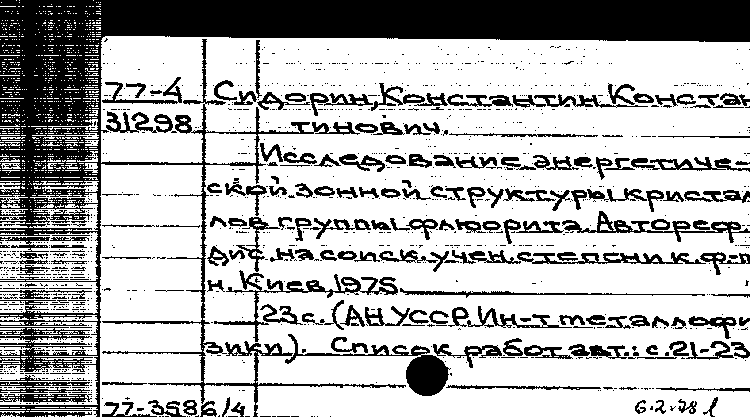 77-4 Сидорин, Константин Констан
31298 тинович.
Исследование энергетиче-
ской зонной структуры кристал
лов группы флюорита. Автореф.
дис. на соиск. учен. степени к. ф-м
н. Киев, 1975.
23 с. (АН УССР. Ин-т металлофи
зики). Список работ авт.: с. 21-23
77-3586/4 6.2.78